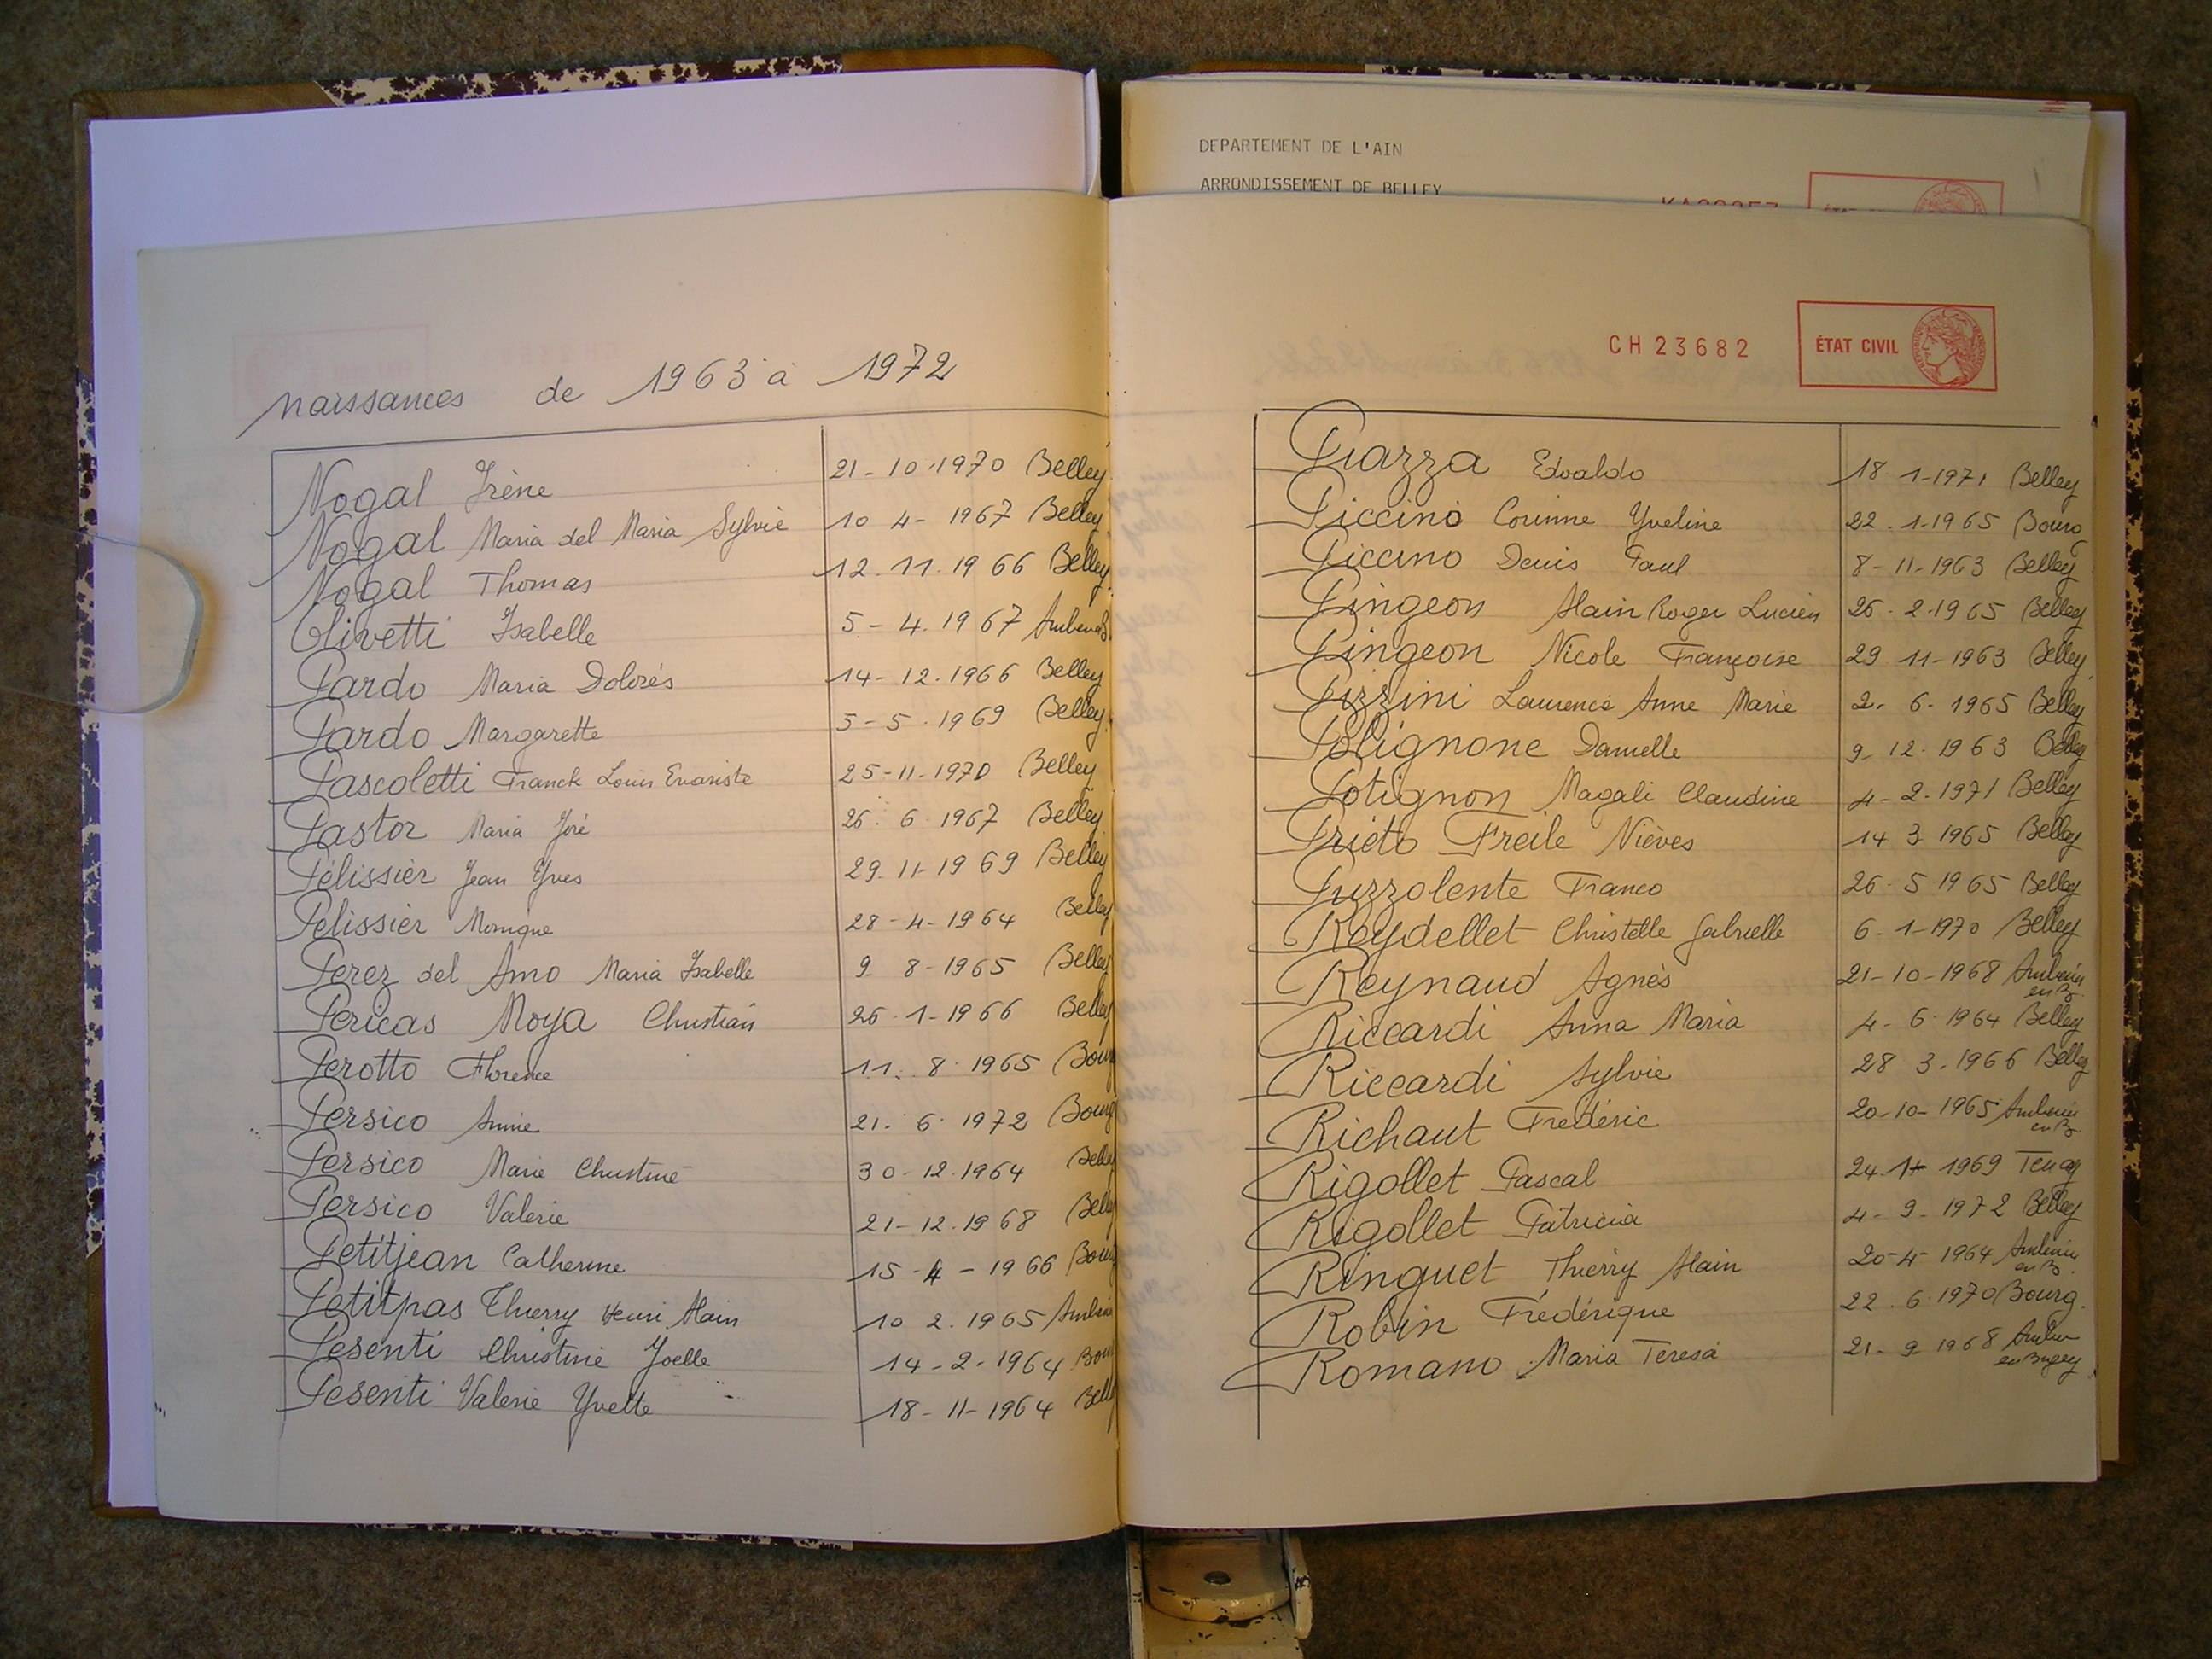 DEPARTEMENT DE L'AIN
ARRONDISSEMENT DE BELLEY
naissances de 1963 à 1972
Nogal Irène 21-10-1970 Belley
Nogal Maria del Maria Sylvie 10 4-1967 Belley
Nogal Thomas 12.11.1966 Belley
Olivetti Isabelle 5-4.1967
Pardo Maria Dolorès 14-12.1966 Belley
Pardo Margarette 5-5.1969 Belley
Pascoletti Franck Louis Evariste 25-11-1970 Belley
Pastor Maria José 26.6.1967 Belley
Pélissier Jean Yves 29-11-1969 Belley
Pelissier Monique 28-4-1964 Belley
Perez del Amo Maria Isabelle 9 8-1965 Belley
Pericas Moya Christian 26.1-1966 Belley
Perotto Florence 11.8.1965 Bourg
Persico Annie 21.6.1972 Bourg
Persico Marie Christine 30-12.1964 Belley
Persico Valerie 21-12.1968 Belley
Petitjean Catherine 15-4-1966 Bourg
Petitpas Thierry Henri Alain 10 2.1965
Pesenti Christine Joelle 14-2-1964 Bour
Pesenti Valerie Yvette 18-11-1964 Bell
CH 23682
ÉTAT CIVIL
Piazza Edoaldo 18 1-1971 Belley
Piccino Corinne Yveline 22.1-1965 Bourg
Piccino Denis Paul 8-11-1963 Belley
Pingeon Alain Roger Lucien 26.2-1965 Belley
Pingeon Nicole Françoise 29 11-1963 Belley
Pizzini Laurence Anne Marie 2.6.1965 Belley
Polignone Danielle 9-12.1963 Belley
Potignon Magali Claudine 4-2-1971 Belley
Prieto Freile Nièves 14 3 1965 Belley
Puzzolente Franco 26.5 1965 Belley
Reydellet Christelle Gabrielle 6-1-1970 Belley
Reynaud Agnès 21-10-1968 en B.
Riccardi Anna Maria 4-6.1964 Belley
Riccardi Sylvie 28 3.1966 Belley
Richaut Fredéric 20-10-1965 en B.
Rigollet Pascal 24. 1969 Tenay
Rigollet Patricia 4-9-1972 Belley
Ringuet Thierry Alain 20-4-1964 en B.
Robin Frédérique 22.6.1970 Bourg.
Romano Maria Teresa 21-9 1968 en Bugey